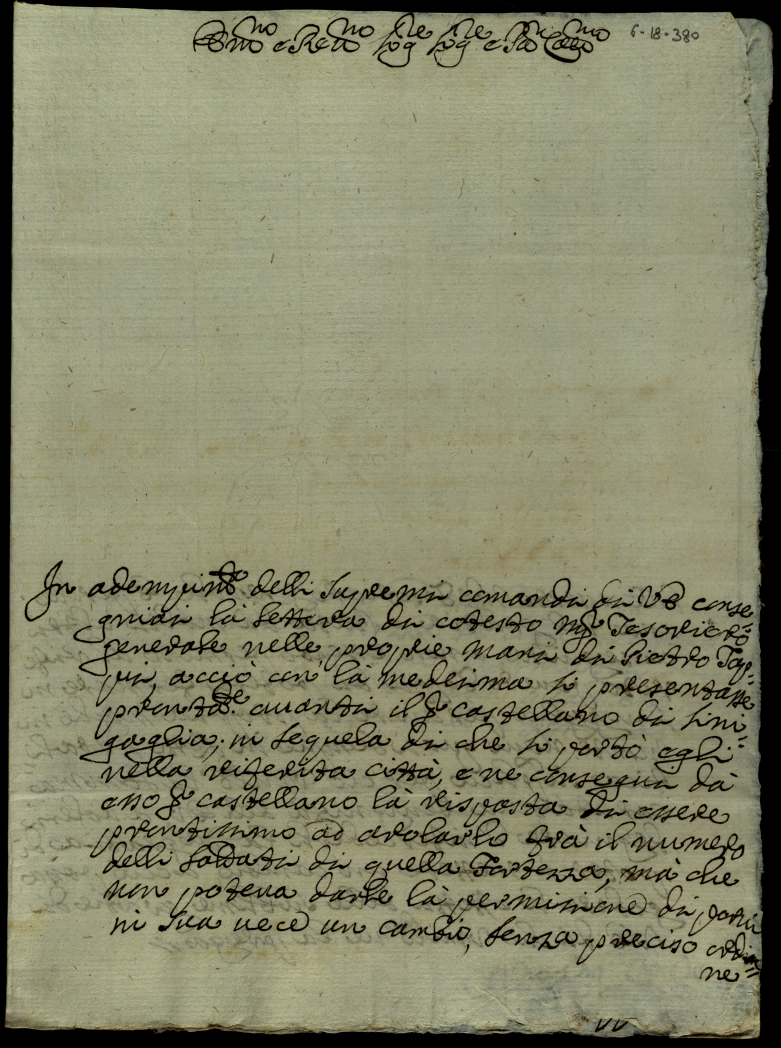 Em.mo e Rev.mo Sig.re Sig.re e P.ron Col.mo
6-18-380
In adempim.to delli supremi comandi di VE conse=
gniai la lettera di cotesto Mg.r Tesoriero
generale nelle proprie mani di Pietro Tap=
pia, acciò con la medesima si presentasse
prontam.te auanti il S.r castellano di Sini=
gaglia; in sequela di che si portò egli
nella riferita città, e ne conseguì dà
esso S.r castellano la risposta di essere
prontissimo ad arolarlo trà il numero
delli soldati di quella Fortezza, mà che
non poteua darle la permissione di porui
in sua uece un cambio, senza preciso ordi=
ne=